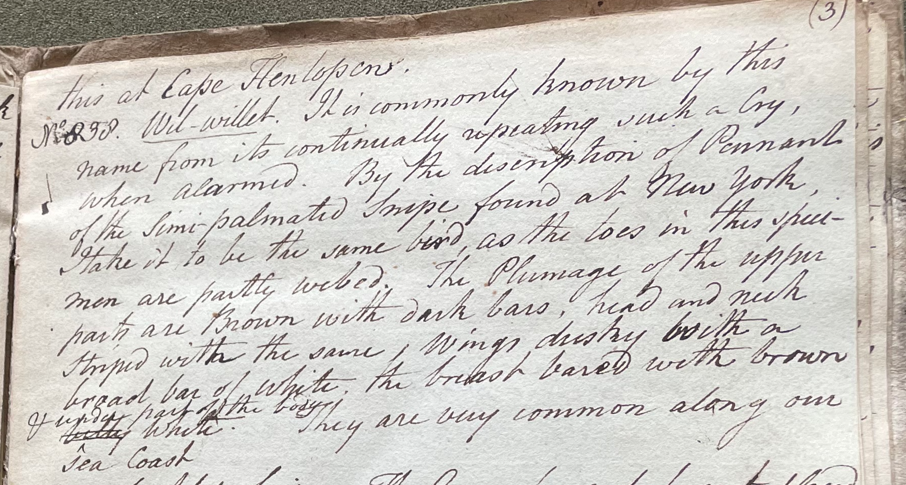 (3)
this at Cape Henlopen.
No. 838. Wil-willet. It is commonly known by this
name from its continually repeating such a Cry,
when alarmed. By the description of Pennant
of the Simi-palmated Snipe found at New York,
I take it to be the same bird, as the toes in this speci-
men are partly webed. The Plumage of the upper
parts are Brown with dark bars, head and neck
striped with the same, Wings duskey with a
broad bar of white, the breast bared with brown
& under part of the body
belly white. They are very common along our
Sea Coast